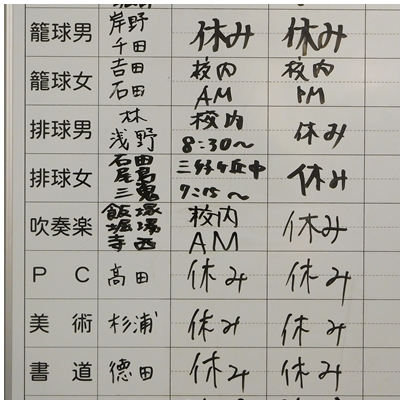 籠球男 岸野 休み 休み
千田
籠球女 吉田 校内 校内
石田 AM PM
排球男 林 校内 休み
浅野 8:30～
排球女 石田 休み
尾島
三鬼 7:15～
吹奏楽 飯塚 校内 休み
堀場
寺西 AM
PC 高田 休み 休み
美術 杉浦 休み 休み
書道 德田 休み 休み